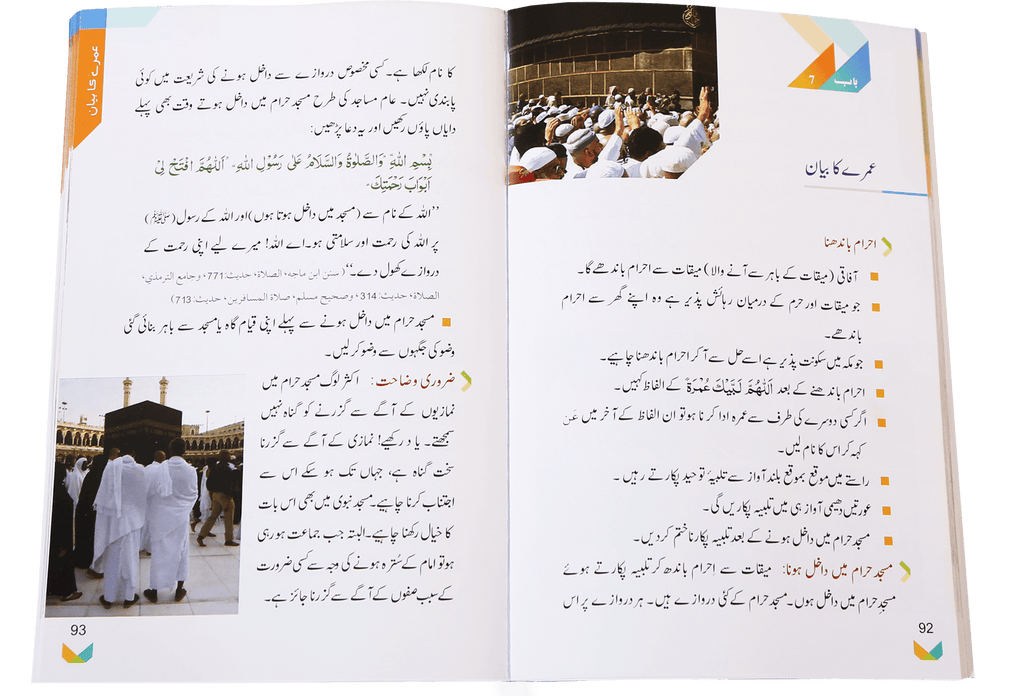 باب 7
عمرے کا بیان
احرام باندھنا
آفاقی (میقات کے باہر سے آنے والا) میقات سے احرام باندھے گا۔
جو میقات اور حرم کے درمیان رہائش پذیر ہے وہ اپنے گھر سے احرام
باندھے۔
جو مکہ میں سکونت پذیر ہے اسے حل سے آ کر احرام باندھنا چاہیے۔
احرام باندھنے کے بعد اَللّٰهُمَّ لَبَّيْكَ عُمْرَةً کے الفاظ کہیں۔
اگر کسی دوسرے کی طرف سے عمرہ ادا کرنا ہو تو ان الفاظ کے آخر میں عَن
کہہ کر اس کا نام لیں۔
راستے میں موقع بموقع بلند آواز سے تلبیۂ توحید پکارتے رہیں۔
عورتیں دھیمی آواز ہی میں تلبیہ پکاریں گی۔
مسجد حرام میں داخل ہونے کے بعد تلبیہ پکارنا ختم کر دیں۔
مسجد حرام میں داخل ہونا: میقات سے احرام باندھ کر تلبیہ پکارتے ہوئے
مسجدِ حرام میں داخل ہوں۔ مسجد حرام کے کئی دروازے ہیں۔ ہر دروازے پر اس
92
عمرے کا بیان
کا نام لکھا ہے۔ کسی مخصوص دروازے سے داخل ہونے کی شریعت میں کوئی
پابندی نہیں۔ عام مساجد کی طرح مسجد حرام میں داخل ہوتے وقت بھی پہلے
دایاں پاؤں رکھیں اور یہ دعا پڑھیں:
بِسْمِ اللهِ وَالصَّلَاةُ وَالسَّلَامُ عَلٰى رَسُوْلِ اللهِ۔ اَللّٰهُمَّ افْتَحْ لِيْ
اَبْوَابَ رَحْمَتِكَ۔
’’اللہ کے نام سے (مسجد میں داخل ہوتا ہوں) اور اللہ کے رسول (ﷺ)
پر اللہ کی رحمت اور سلامتی ہو۔ اے اللہ! میرے لیے اپنی رحمت کے
دروازے کھول دے۔‘‘ (سنن ابن ماجه، الصلاة، حديث:771، وجامع الترمذي،
الصلاة، حديث:314، وصحيح مسلم، صلاة المسافرين، حديث:713)
مسجد حرام میں داخل ہونے سے پہلے اپنی قیام گاہ یا مسجد سے باہر بنائی گئی
وضو کی جگہوں سے وضو کر لیں۔
ضروری وضاحت: اکثر لوگ مسجد حرام میں
نمازیوں کے آگے سے گزرنے کو گناہ نہیں
سمجھتے۔ یاد رکھیے! نمازی کے آگے سے گزرنا
سخت گناہ ہے، جہاں تک ہو سکے اس سے
اجتناب کرنا چاہیے۔ مسجد نبوی میں بھی اس بات
کا خیال رکھنا چاہیے۔ البتہ جب جماعت ہو رہی
ہو تو امام کے سُترہ ہونے کی وجہ سے کسی ضرورت
کے سبب صفوں کے آگے سے گزرنا جائز ہے۔
93